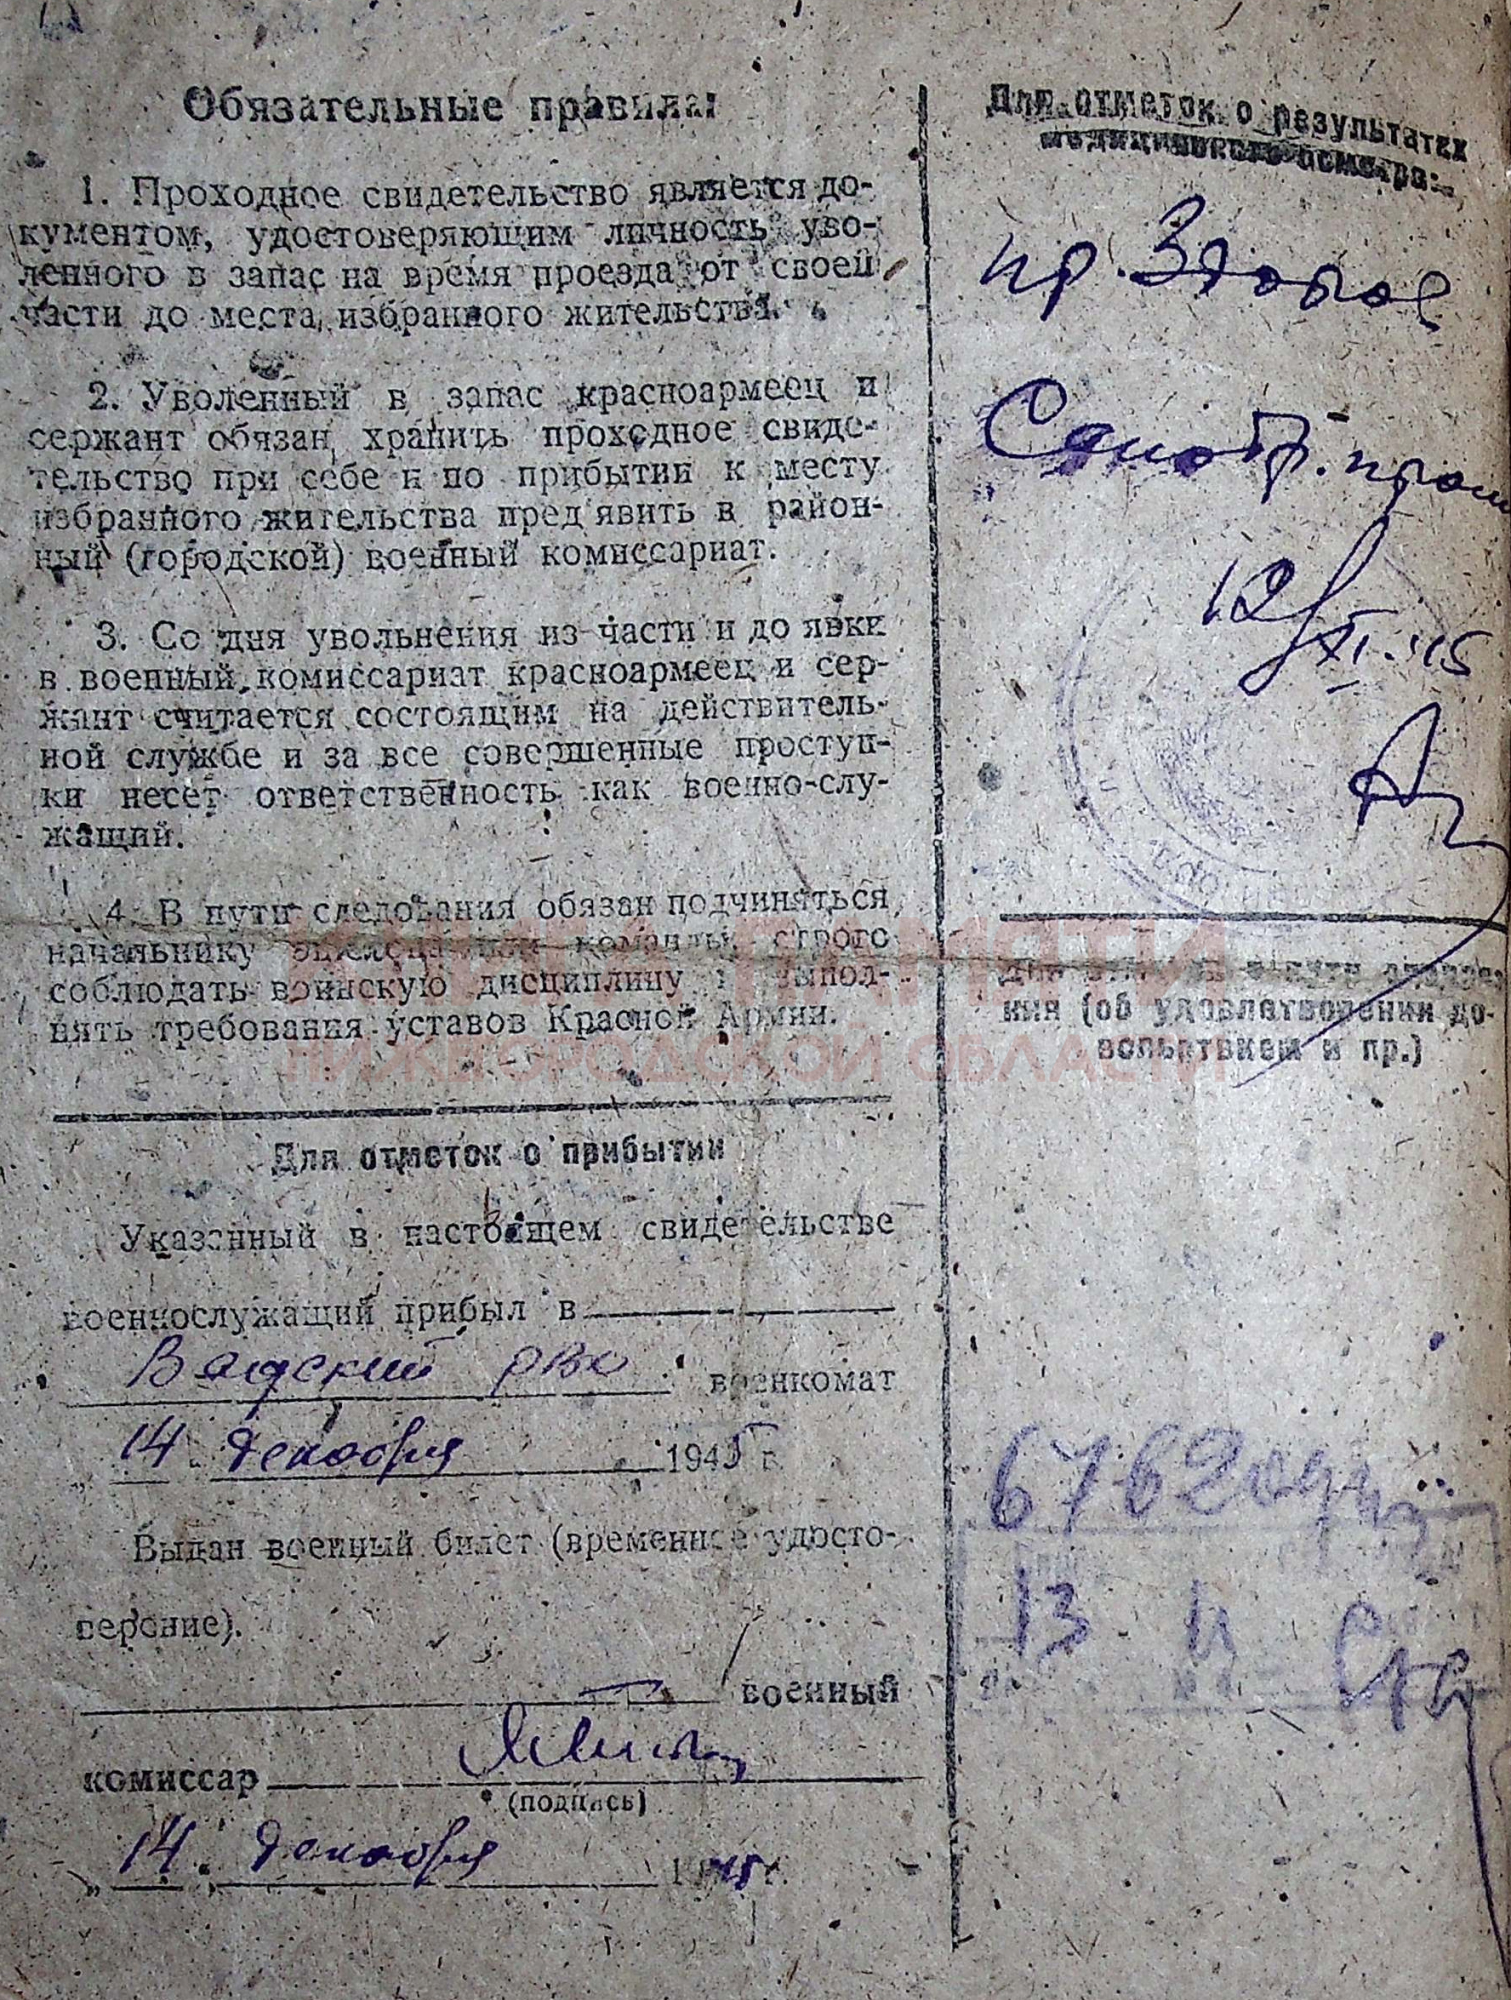 Обязательные правила:
1. Проходное свидетельство является до-
кументом, удостоверяющим личность уво-
ленного в запас на время проезда от своей
части до места избранного жительства.
2. Уволенный в запас красноармеец и
сержант обязан хранить проходное свиде-
тельство при себе и по прибытии к месту
избранного жительства пред'явить в район-
ный (городской) военный комиссариат.
3. Со дня увольнения из части и до явки
в военный комиссариат красноармеец и сер-
жант считается состоящим на действитель-
ной службе и за все совершенные проступ-
ки несет ответственность как военно-слу-
жащий.
4. В пути следования обязан подчиняться
начальнику эшелона или команды, строго
соблюдать воинскую дисциплину и выпол-
нять требования уставов Красной Армии.
Для отметок о прибытии
Указанный в настоящем свидетельстве
военнослужащий прибыл в
Вадский РВК военкомат
14 декабря 1945 г.
Выдан военный билет (временное удосто-
верение).
военный
комиссар
(подпись)
"14" декабря 1945 г.
Для отметок о результатах
медицинского осмотра:
пр. здоров
12/XI-45
Для отметок в пути следова-
ния (об удовлетворении до-
вольствием и пр.)
6762
13
КНИГА ПАМЯТИ
НИЖЕГОРОДСКОЙ ОБЛАСТИ